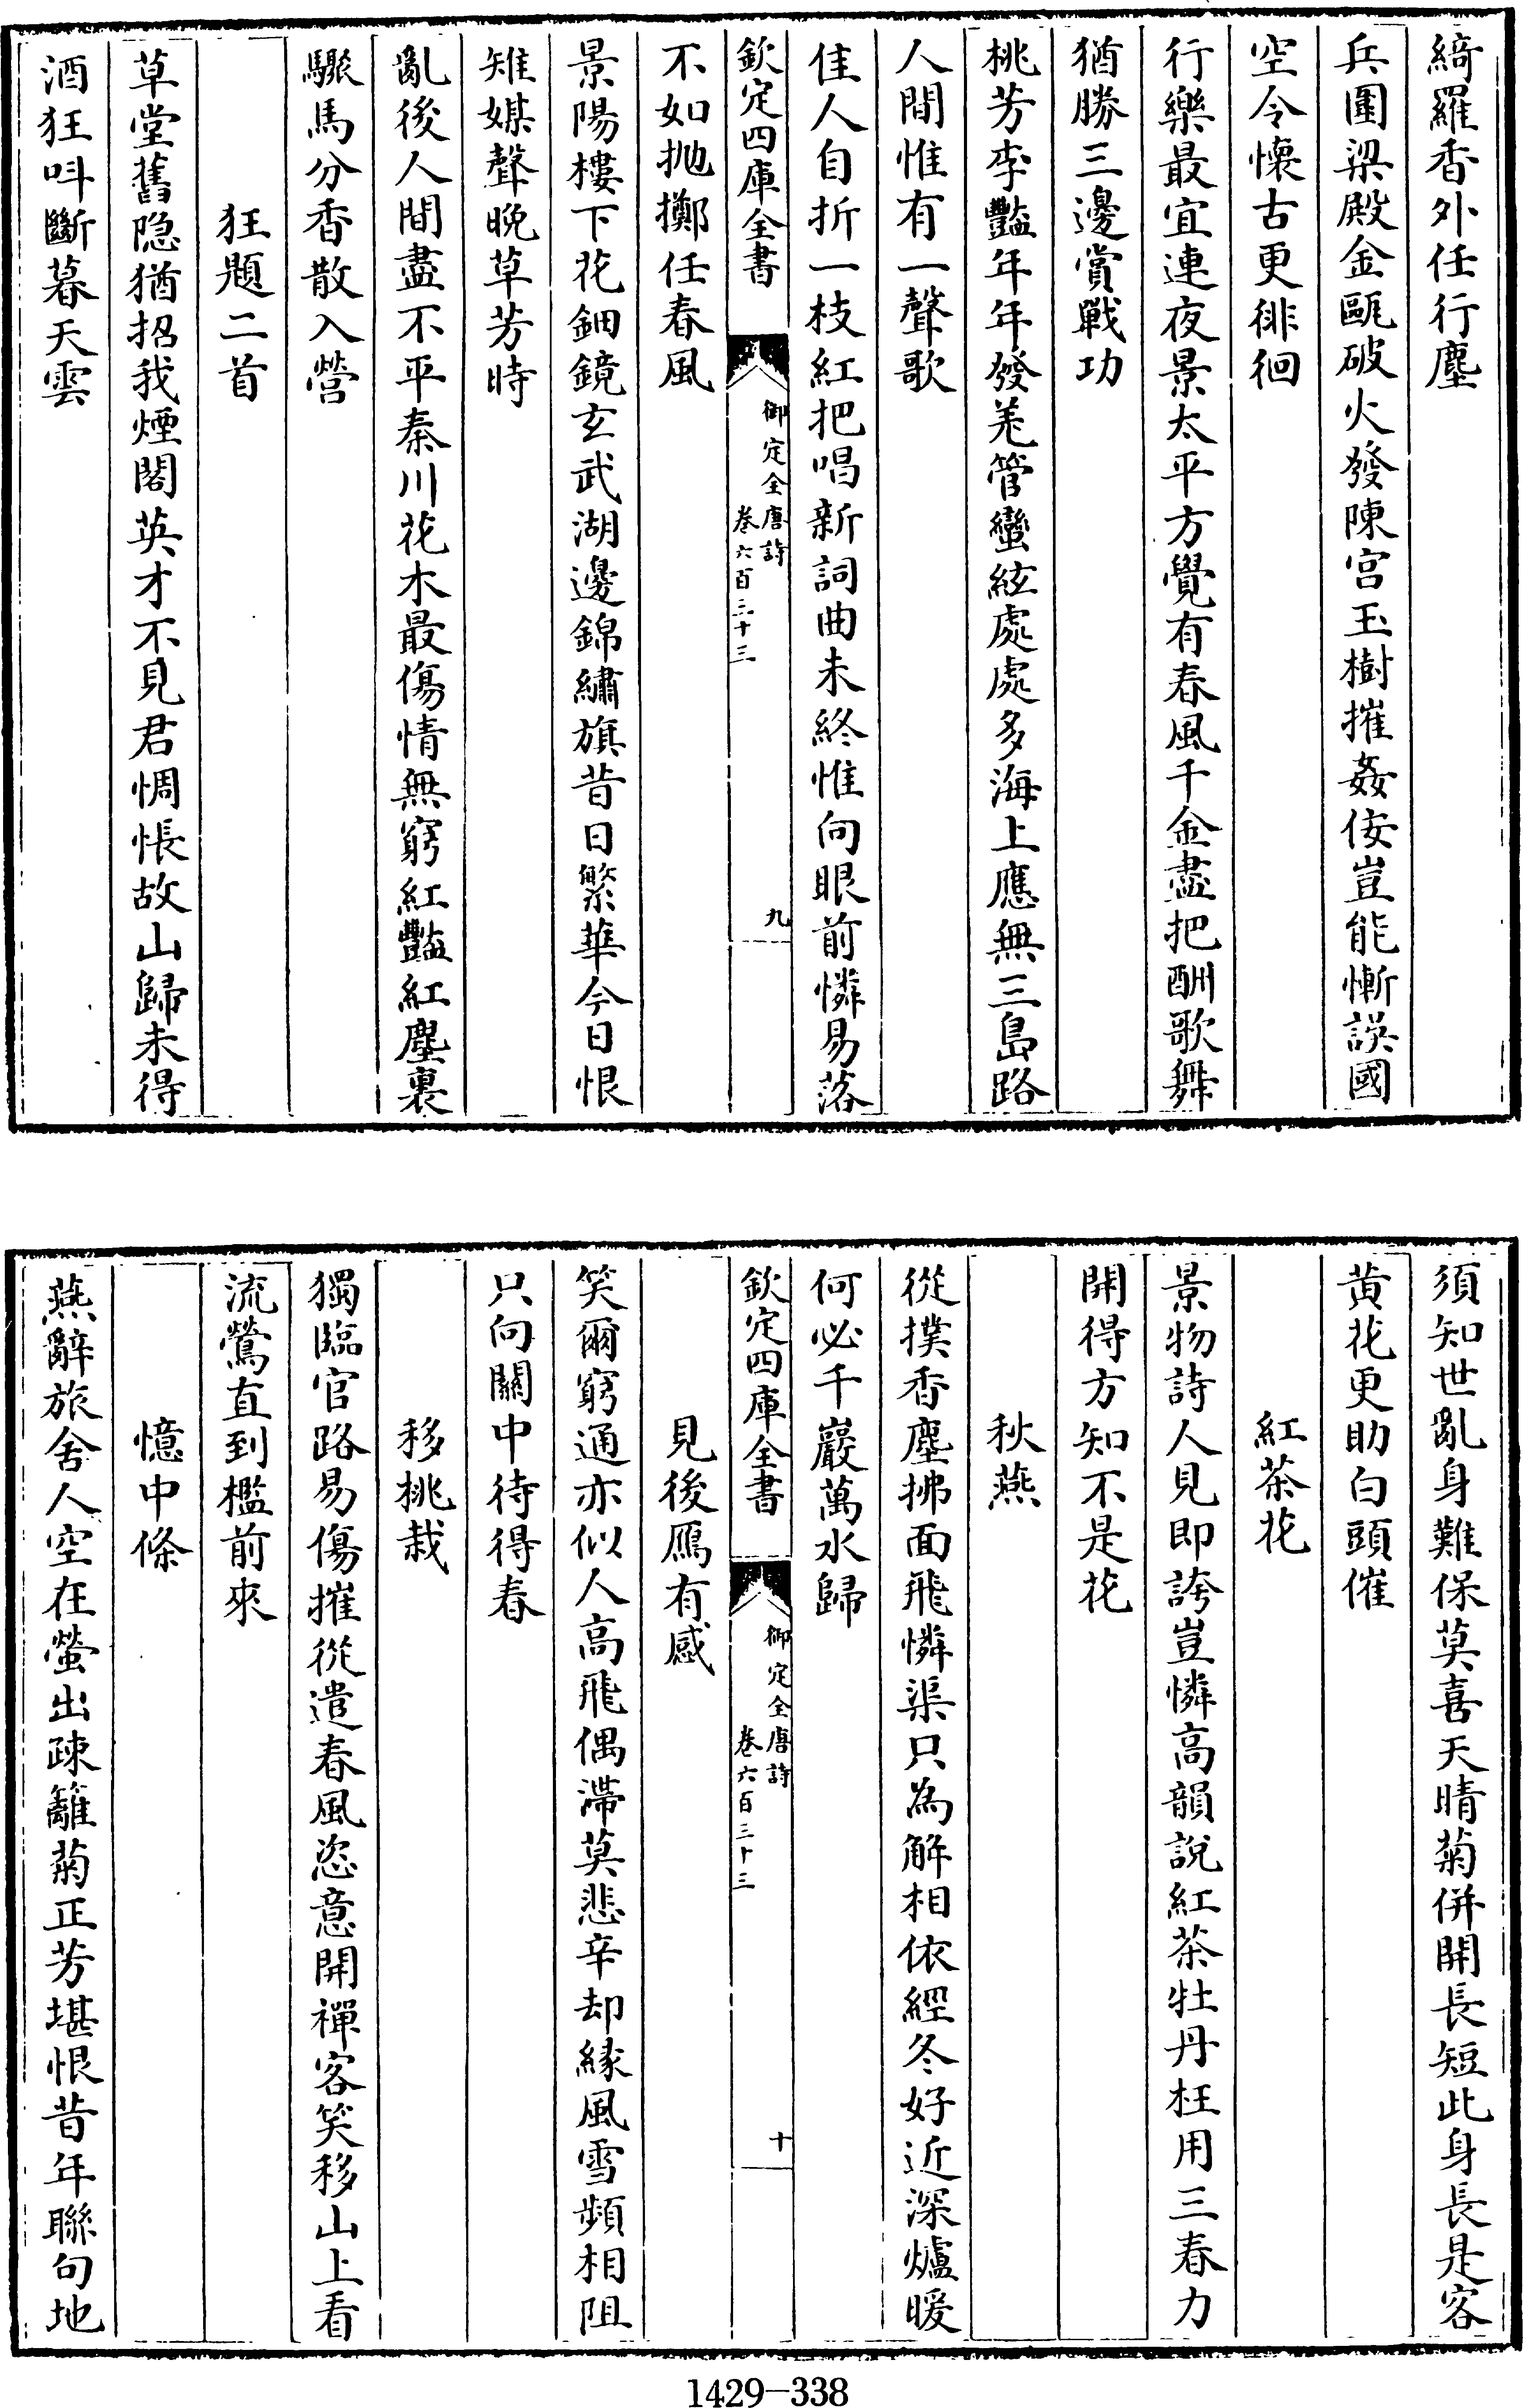 綺羅香外任行塵
兵圍梁殿金甌破火發陳宫玉樹摧姦佞豈能慚誤國
空令懷古更徘徊
行樂最宜連夜景太平方覺有春風千金盡把酬歌舞
猶勝三邊賞戰功
桃芳李豔年年發羌管蠻絃處處多海上應無三島路
人間惟有一聲歌
佳人自折一枝紅把唱新詞曲未終惟向眼前憐易落
欽定四庫全書
御定全唐詩
卷六百三十三
九
不如抛擲任春風
景陽樓下花鈿鏡玄武湖邊錦繡旗昔日繁華今日恨
雉媒聲晚草芳時
亂後人間盡不平秦川花木最傷情無窮紅豔紅塵裏
驟馬分香散入營
狂題二首
草堂舊隐猶招我煙閣英才不見君惆悵故山歸未得
酒狂呌斷暮天雲
須知世亂身難保莫喜天晴菊併開長短此身長是客
黄花更助白頭催
紅茶花
景物詩人見即誇豈憐高韻說紅茶牡丹枉用三春力
開得方知不是花
秋燕
從撲香塵拂面飛憐渠只為解相依經冬好近深爐暖
何必千巖萬水歸
欽定四庫全書
御定全唐詩
卷六百三十三
十
見後鴈有感
笑爾窮通亦似人高飛偶滯莫悲辛却緣風雪頻相阻
只向關中待得春
移桃栽
獨臨官路易傷摧從遣春風恣意開禪客笑移山上看
流鶯直到檻前來
憶中條
燕辭旅舍人空在螢出疎籬菊正芳堪恨昔年聯句地
1429-338